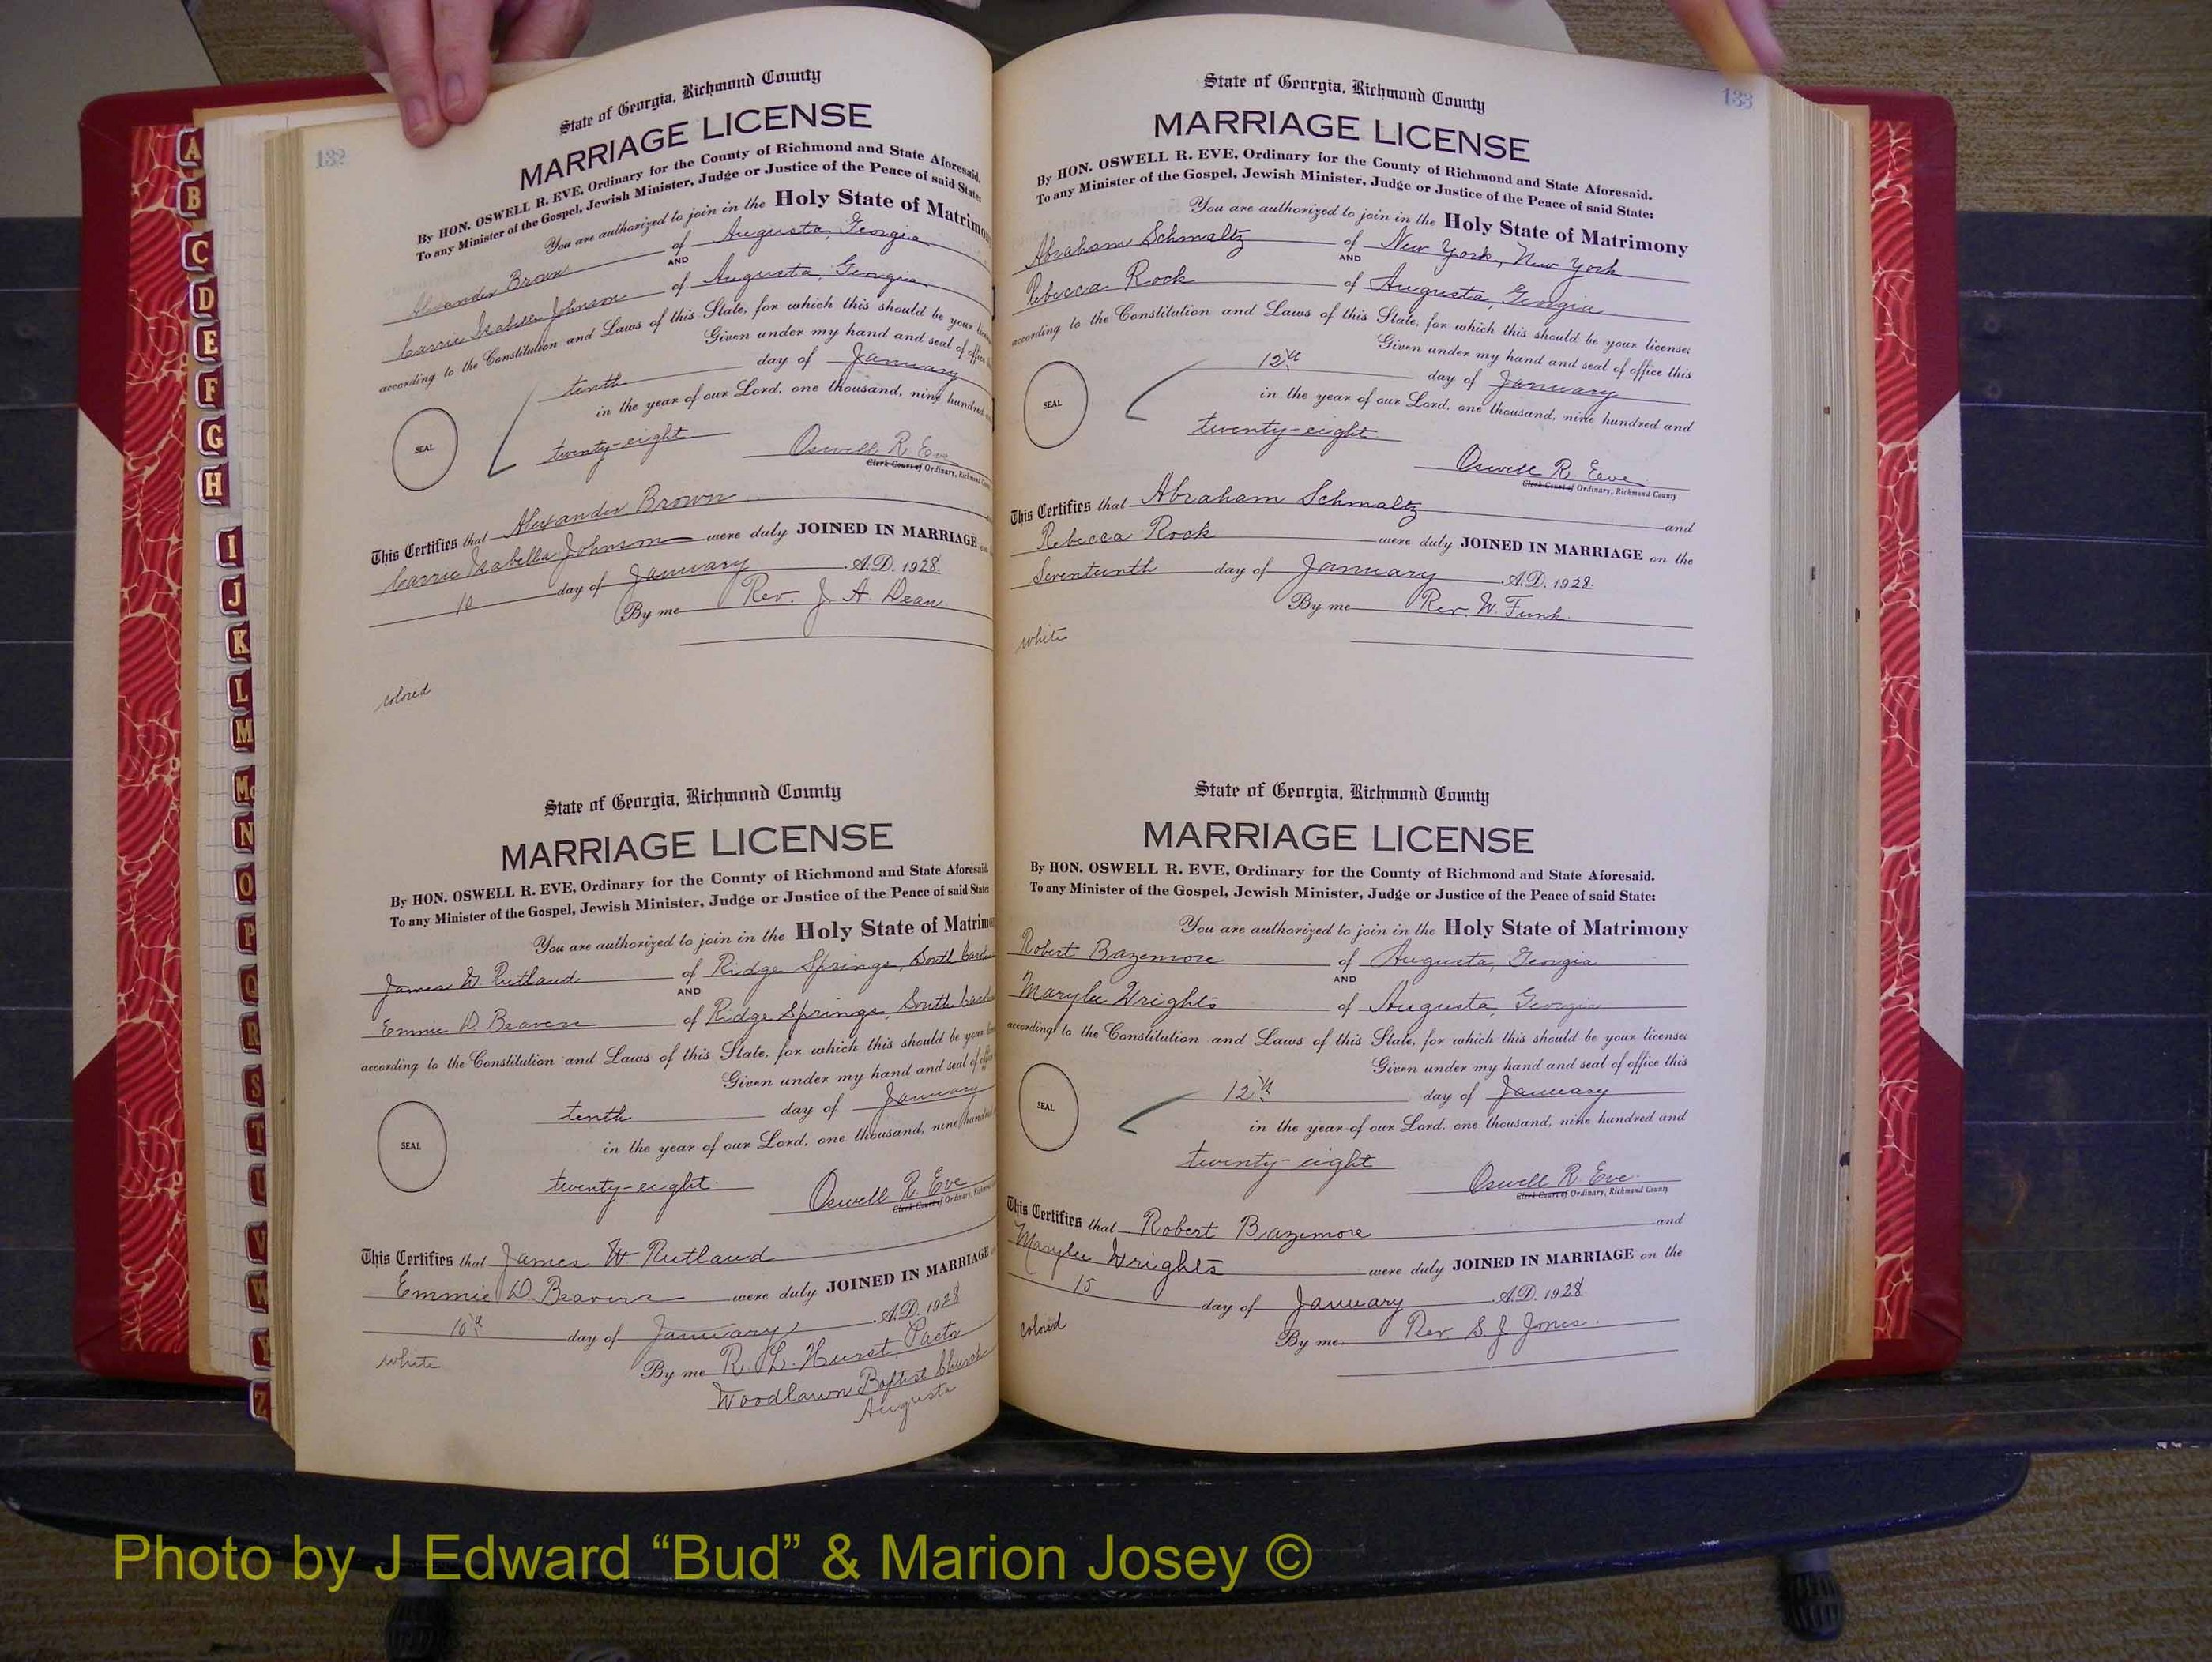 132
State of Georgia, Richmond County
MARRIAGE LICENSE
By HON. OSWELL R. EVE, Ordinary for the County of Richmond and State Aforesaid.
To any Minister of the Gospel, Jewish Minister, Judge or Justice of the Peace of said State:
You are authorized to join in the Holy State of Matrimon
Alexander Brown of Augusta, Georgia
AND
Carrie Isabella Johnson of Augusta, Georgia
according to the Constitution and Laws of this State, for which this should be your
Given under my hand and seal of office
tenth day of January
in the year of our Lord, one thousand, nine hundred
SEAL
twenty-eight
Oswell R. Eve
Clerk Court of Ordinary, Richmond
This Certifies that Alexander Brown
Carrie Isabella Johnson were duly JOINED IN MARRIAGE
10 day of January A.D. 1928
By me Rev. J. A. Dean
colored
State of Georgia, Richmond County
MARRIAGE LICENSE
By HON. OSWELL R. EVE, Ordinary for the County of Richmond and State Aforesaid.
To any Minister of the Gospel, Jewish Minister, Judge or Justice of the Peace of said State:
You are authorized to join in the Holy State of Matrimon
James W Rutland of Ridge Springs, South
AND
Emmie D Beavers of Ridge Springs, South
according to the Constitution and Laws of this State, for which this should be your
Given under my hand and seal of
tenth day of January
in the year of our Lord, one thousand, nine hundred
SEAL
twenty-eight
Oswell R. Eve
Clerk Court of Ordinary,
This Certifies that James W Rutland
Emmie D. Beavers were duly JOINED IN MARRIAGE
10th day of January A.D. 1928
white
By me R. L. Hurst, Pastor
Woodlawn Baptist Church
Augusta
133
State of Georgia, Richmond County
MARRIAGE LICENSE
By HON. OSWELL R. EVE, Ordinary for the County of Richmond and State Aforesaid.
To any Minister of the Gospel, Jewish Minister, Judge or Justice of the Peace of said State:
You are authorized to join in the Holy State of Matrimony
Abraham Schmaltz of New York, New York
AND
Rebecca Rock of Augusta, Georgia
according to the Constitution and Laws of this State, for which this should be your licenses
Given under my hand and seal of office this
12th day of January
in the year of our Lord, one thousand, nine hundred and
SEAL
twenty-eight
Oswell R. Eve
Clerk Court of Ordinary, Richmond County
This Certifies that Abraham Schmaltz and
Rebecca Rock were duly JOINED IN MARRIAGE on the
Seventeenth day of January A.D. 1928.
By me Rev. W. Funk.
white
State of Georgia, Richmond County
MARRIAGE LICENSE
By HON. OSWELL R. EVE, Ordinary for the County of Richmond and State Aforesaid.
To any Minister of the Gospel, Jewish Minister, Judge or Justice of the Peace of said State:
You are authorized to join in the Holy State of Matrimony
Robert Bazemore of Augusta, Georgia
AND
Marylee Wrights of Augusta, Georgia
according to the Constitution and Laws of this State, for which this should be your licenses
Given under my hand and seal of office this
12th day of January
in the year of our Lord, one thousand, nine hundred and
SEAL
twenty-eight
Oswell R. Eve
Clerk Court of Ordinary, Richmond County
This Certifies that Robert Bazemore and
Marylee Wrights were duly JOINED IN MARRIAGE on the
15 day of January A.D. 1928
colored
By me Rev. S. J. Jones.
A
B
C
D
E
F
G
H
I
J
K
L
M
Mc
N
O
P
Q
R
S
T
U
V
W
Y
Z
Photo by J Edward “Bud” & Marion Josey ©